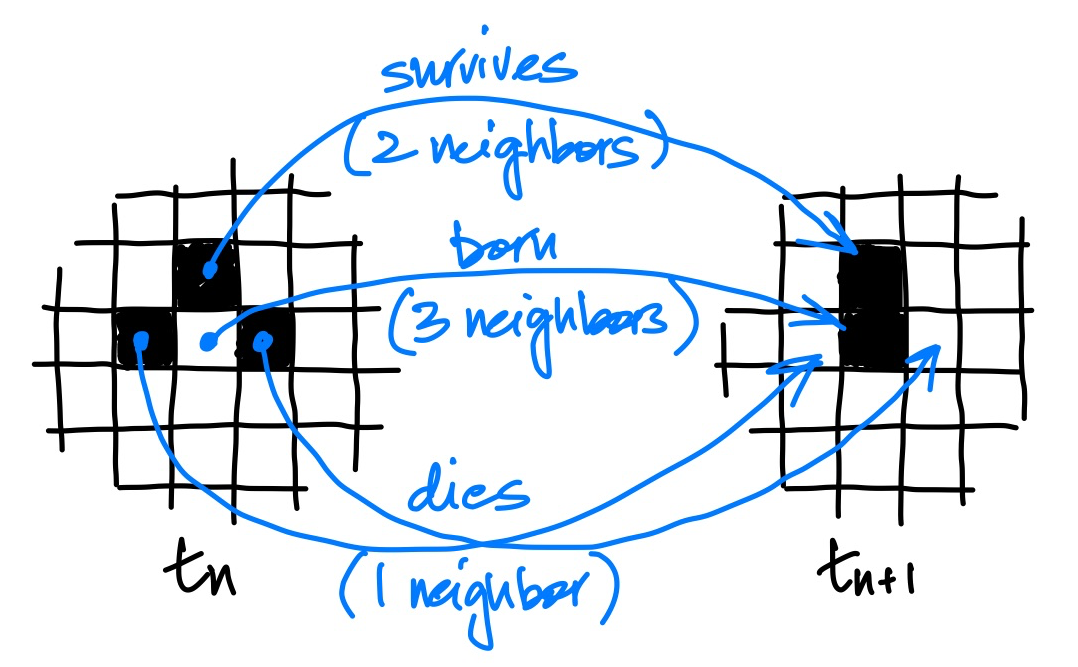 survives
(2 neighbors)
born
(3 neighbors)
dies
(1 neighbor)
tn
tn+1